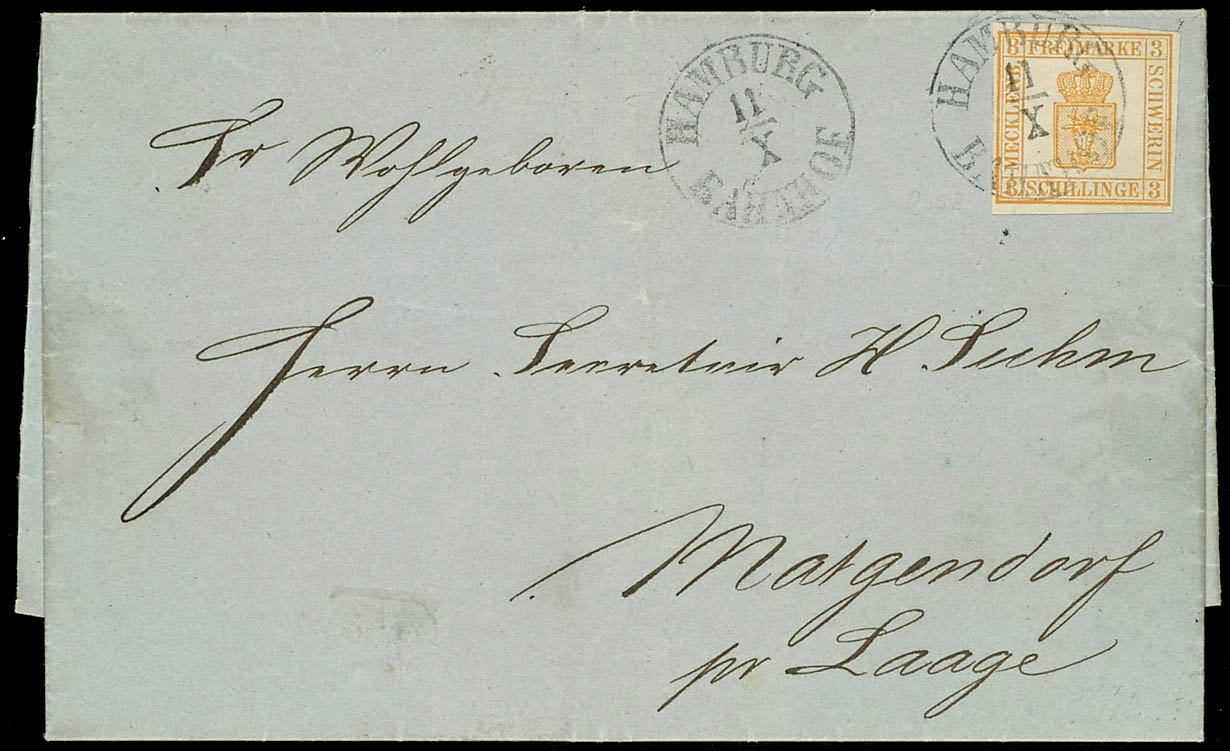 HAMBURG
11
X
BAHNHOF
HAMBURG
11
X
3 FREIMARKE 3
MECKLENB.
SCHWERIN
3 SCHILLINGE 3
Sr Wohlgeboren
Herrn Secretair H Suhm
Matgendorf
pr Laage